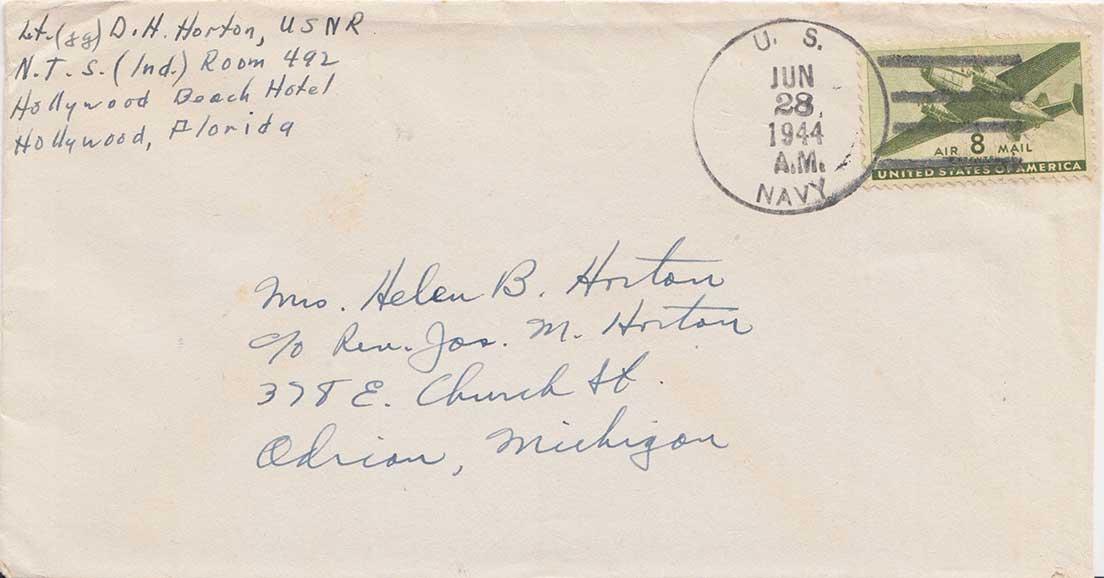 Lt. (jg) D. H. Horton, USNR
N.T.S. (Ind.) Room 492
Hollywood Beach Hotel
Hollywood, Florida
U. S.
JUN
28
1944
A.M.
NAVY
AIR 8 MAIL
UNITED STATES OF AMERICA
Mrs. Helen B. Horton
c/o Rev. Jos. M. Horton
378 E. Church St.
Adrian, Michigan